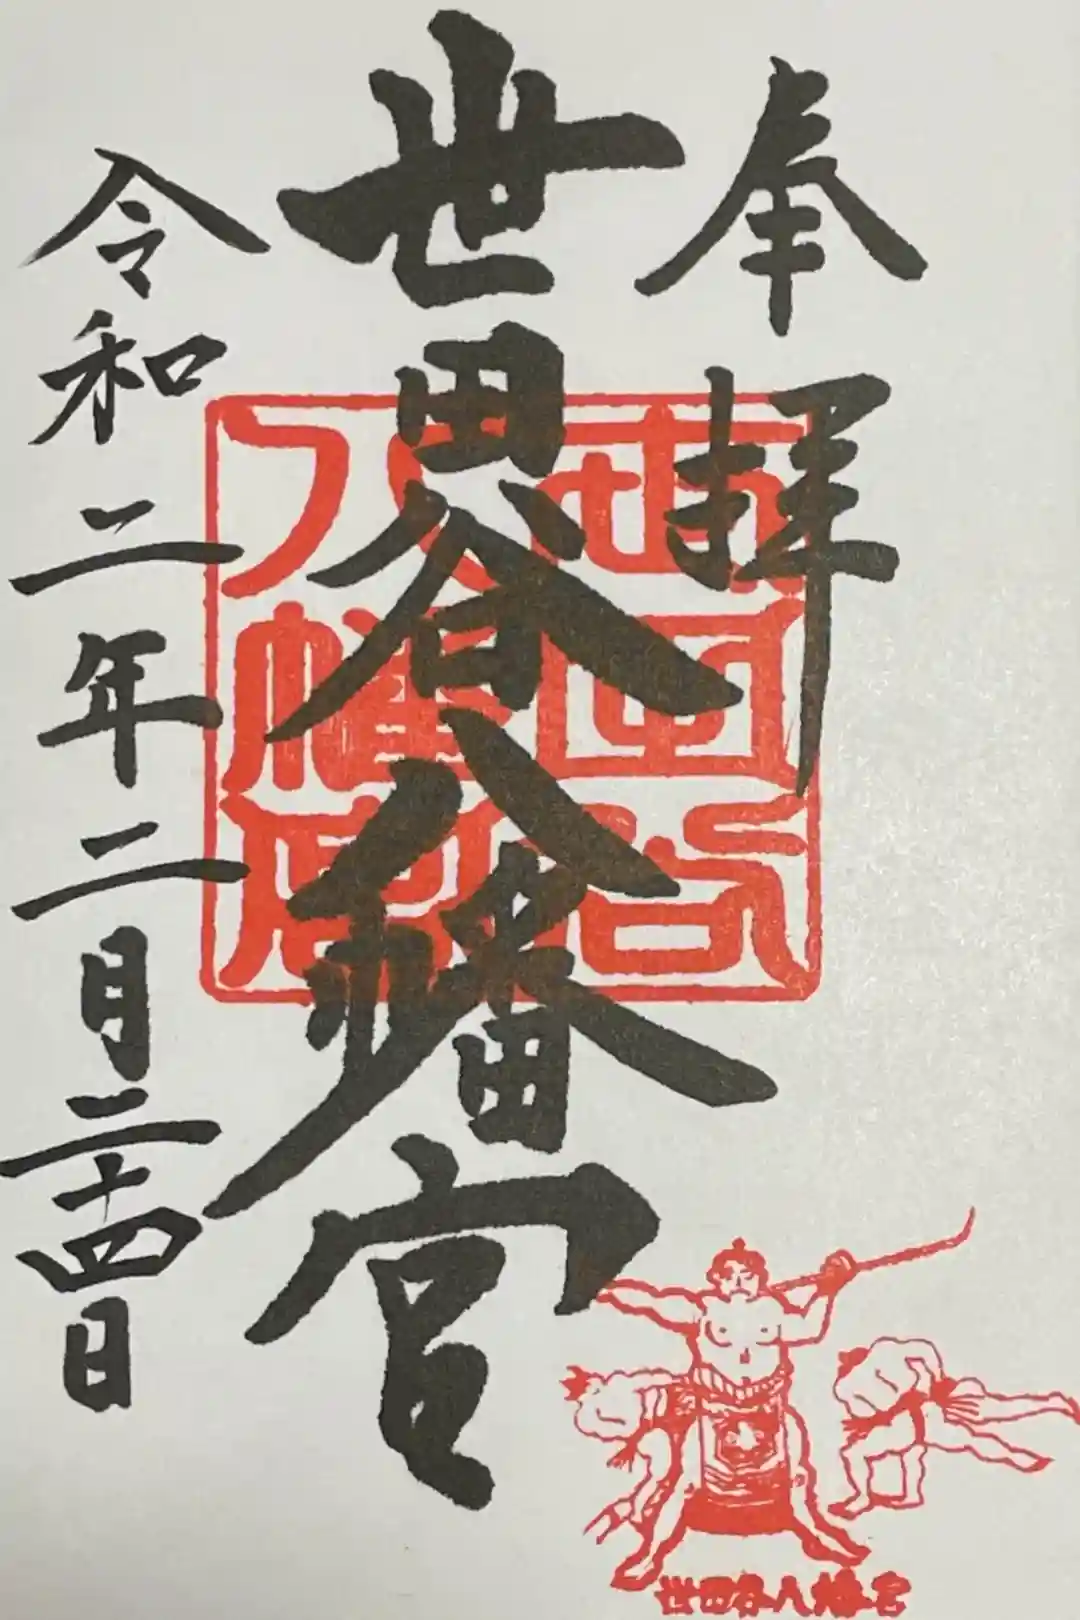 奉拝
世田谷八幡宮
世田谷
八幡宮
令和二年二月二十四日
世田谷八幡宮